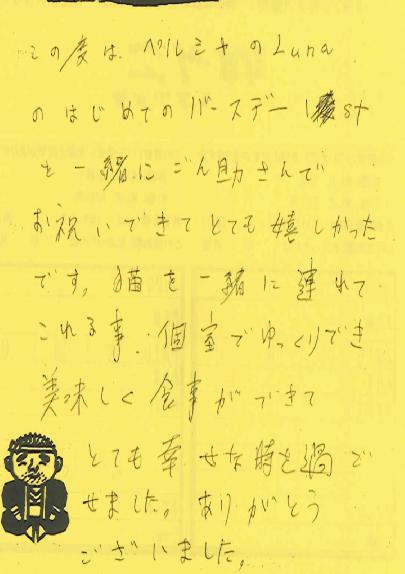 この度は ペルシャのLuna
のはじめてのバースデー 1st
を一緒にごん助さんで
お祝いできてとても嬉しかった
です。猫を一緒に連れて
これる事、個室でゆっくりでき
美味しく食事ができて
とても幸せな時を過ご
せました。ありがとう
ございました。